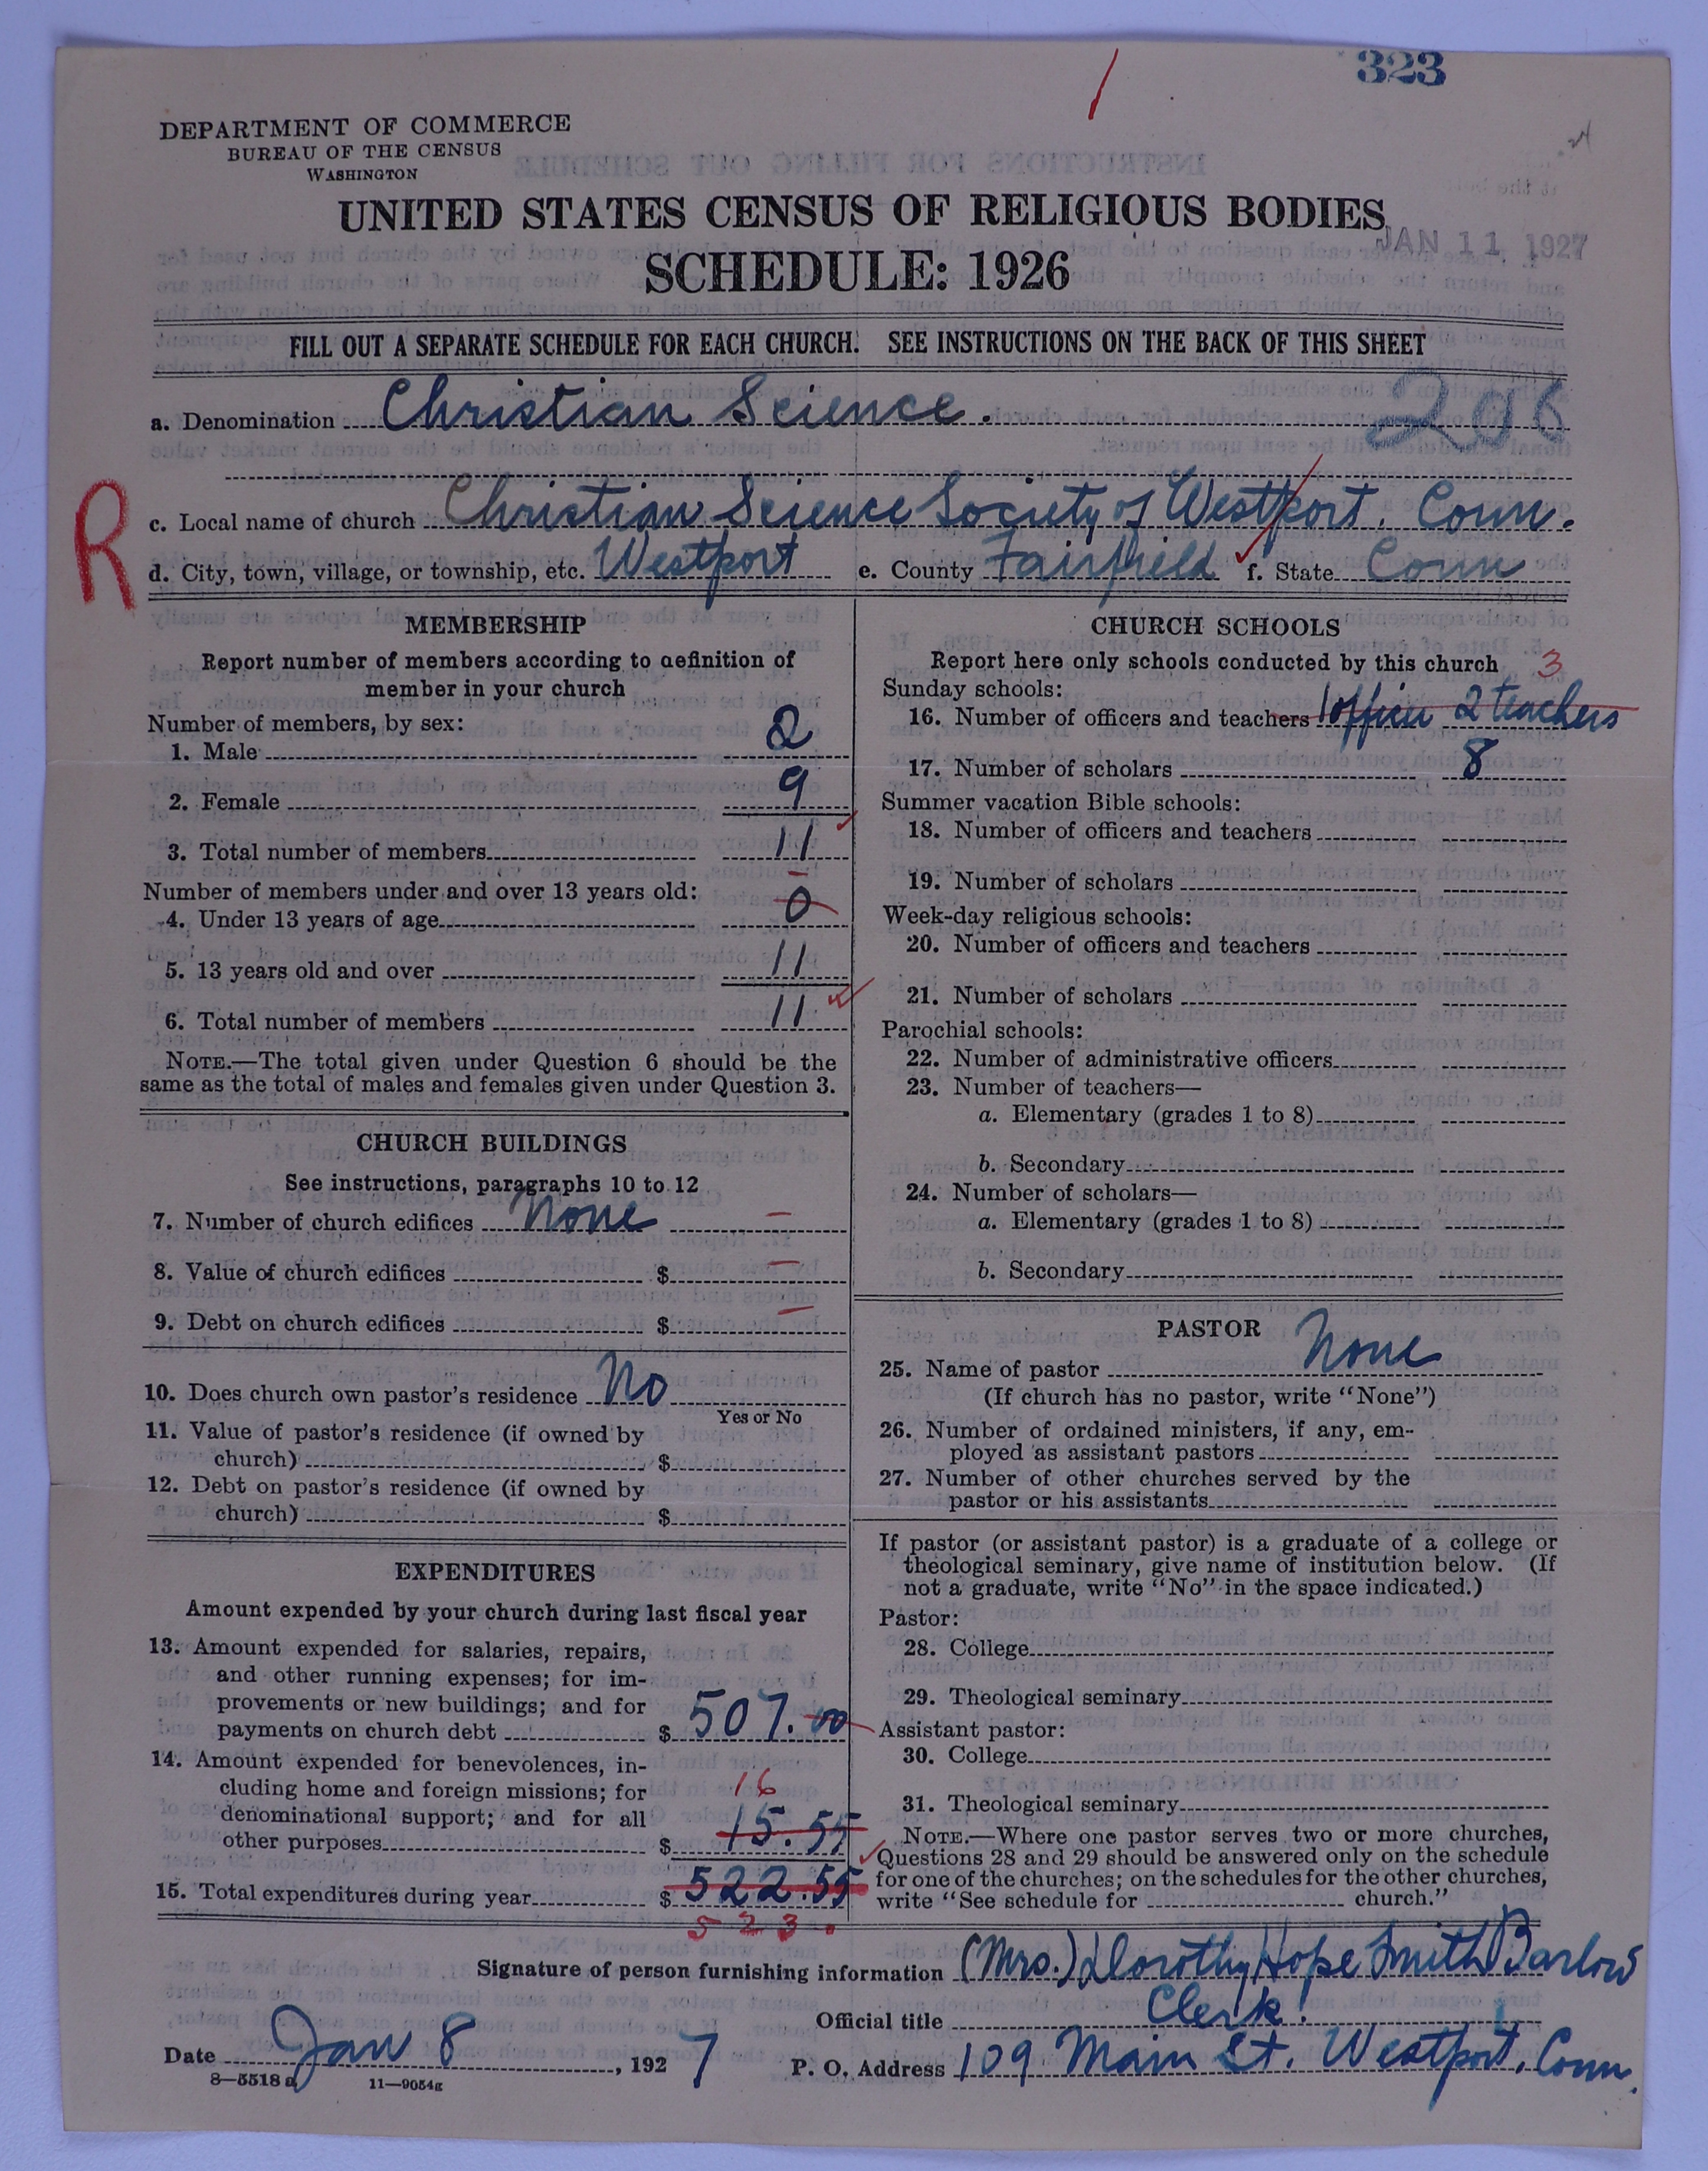 323
DEPARTMENT OF COMMERCE
BUREAU OF THE CENSUS
WASHINGTON
UNITED STATES CENSUS OF RELIGIOUS BODIES
JAN 11 1927
SCHEDULE: 1926
FILL OUT A SEPARATE SCHEDULE FOR EACH CHURCH. SEE INSTRUCTIONS ON THE BACK OF THIS SHEET
a. Denomination Christian Science. 206
R
c. Local name of church Christian Science Society of Westport, Conn.
d. City, town, village, or township, etc. Westport e. County Fairfield f. State Conn
MEMBERSHIP
Report number of members according to definition of
member in your church
Number of members, by sex:
1. Male 2
2. Female 9
3. Total number of members 11
Number of members under and over 13 years old:
4. Under 13 years of age 0
5. 13 years old and over 11
6. Total number of members 11
NOTE.—The total given under Question 6 should be the
same as the total of males and females given under Question 3.
CHURCH BUILDINGS
See instructions, paragraphs 10 to 12
7. Number of church edifices None
8. Value of church edifices $
9. Debt on church edifices $
10. Does church own pastor's residence No
Yes or No
11. Value of pastor's residence (if owned by
church) $
12. Debt on pastor's residence (if owned by
church) $
EXPENDITURES
Amount expended by your church during last fiscal year
13. Amount expended for salaries, repairs,
and other running expenses; for im-
provements or new buildings; and for
payments on church debt $ 507.00
14. Amount expended for benevolences, in-
cluding home and foreign missions; for 16
denominational support; and for all
other purposes $ 15.55
15. Total expenditures during year $ 522.55
523.
CHURCH SCHOOLS
Report here only schools conducted by this church 3
Sunday schools:
16. Number of officers and teachers 1 officer 2 teachers
17. Number of scholars 8
Summer vacation Bible schools:
18. Number of officers and teachers
19. Number of scholars
Week-day religious schools:
20. Number of officers and teachers
21. Number of scholars
Parochial schools:
22. Number of administrative officers
23. Number of teachers—
a. Elementary (grades 1 to 8)
b. Secondary
24. Number of scholars—
a. Elementary (grades 1 to 8)
b. Secondary
PASTOR
25. Name of pastor None
(If church has no pastor, write "None")
26. Number of ordained ministers, if any, em-
ployed as assistant pastors
27. Number of other churches served by the
pastor or his assistants
If pastor (or assistant pastor) is a graduate of a college or
theological seminary, give name of institution below. (If
not a graduate, write "No" in the space indicated.)
Pastor:
28. College
29. Theological seminary
Assistant pastor:
30. College
31. Theological seminary
NOTE.—Where one pastor serves two or more churches,
Questions 28 and 29 should be answered only on the schedule
for one of the churches; on the schedules for the other churches,
write "See schedule for church."
Signature of person furnishing information (Mrs.) Dorothy Hope Smith Barlow
Official title Clerk.
Date Jan 8, 1927 P. O. Address 109 Main St. Westport, Conn.
8—5518 a 11—9054g